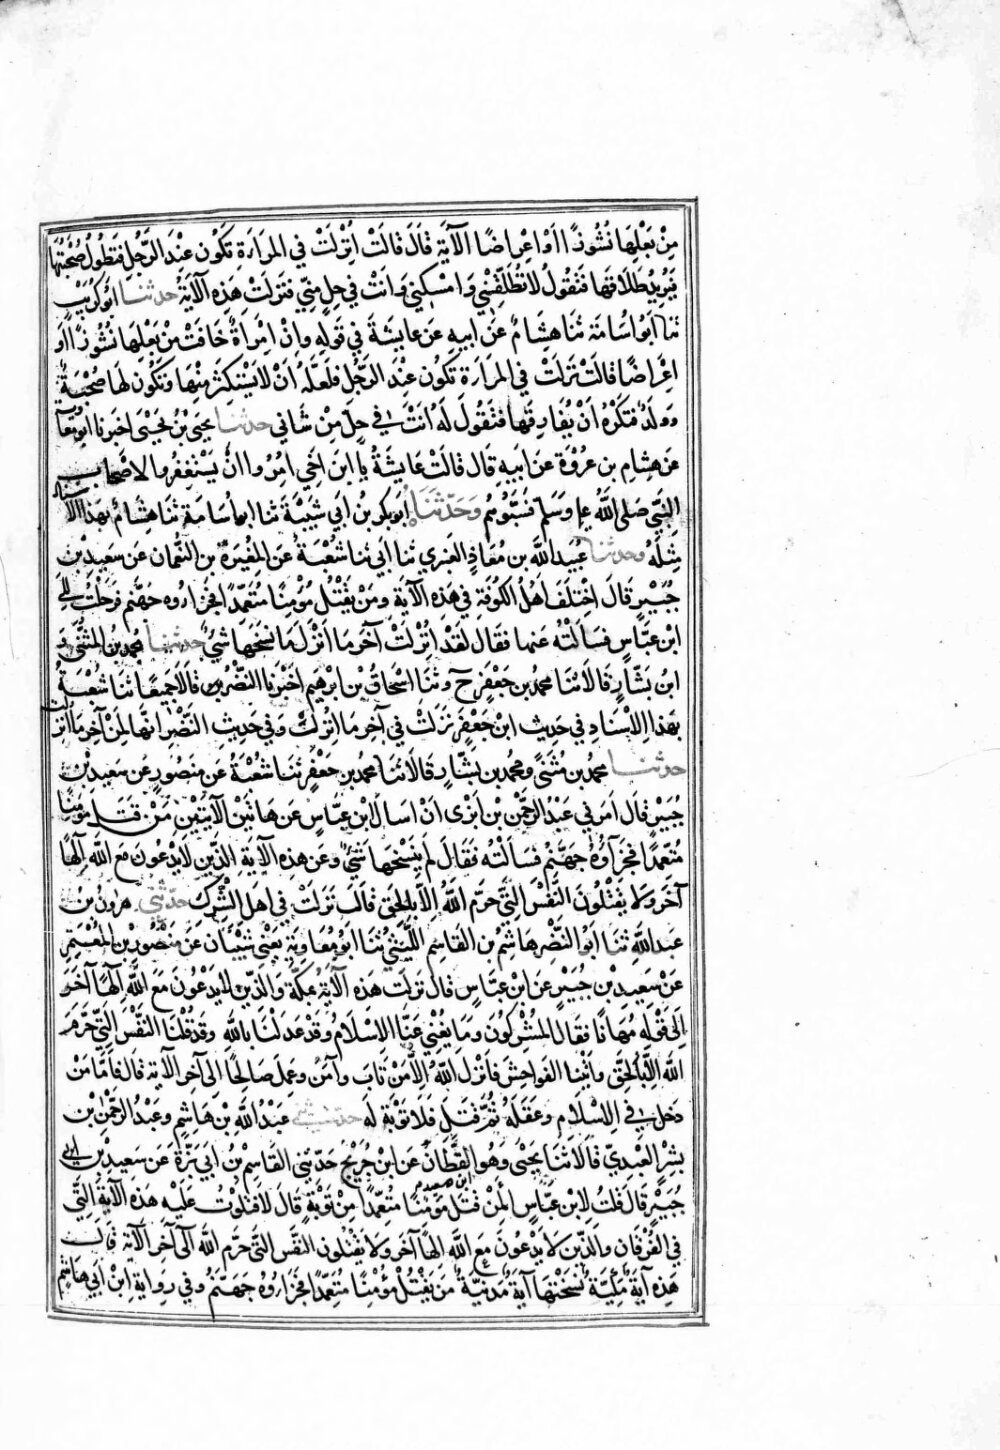 مِنْ بَعْلِهَا نُشُوزًا اَوْ اِعْرَاضًا الآيَة قَالَ قَالَتْ اُنْزِلَتْ فِي المَرْاَةِ تَكُونُ عِنْدَ الرَّجُلِ فَتَطُولُ صُحْبَتُهَا
فَيُرِيدُ طَلَاقَهَا فَتَقُولُ لَا تُطَلِّقْنِي وَامْسِكْنِي وَاَنْتَ فِي حِلٍّ مِنِّي فَنَزَلَتْ هٰذِهِ الآيَةُ حدثنا اَبُو كُرَيْبٍ
ثنا اَبُو اُسَامَةَ ثنا هِشَامٌ عَنْ اَبِيهِ عَنْ عَايِشَةَ فِي قَوْلِهِ وَاِنْ امْرَاَةٌ خَافَتْ مِنْ بَعْلِهَا نُشُوزًا اَوْ
اِعْرَاضًا قَالَتْ نَزَلَتْ فِي المَرْاَةِ تَكُونُ عِنْدَ الرَّجُلِ فَلَعَلَّهُ اَنْ لَا يَسْتَكْثِرَ مِنْهَا وَتَكُونُ لَهَا صُحْبَةٌ
وَوَلَدٌ فَتَكْرَهُ اَنْ يُفَارِقَهَا فَتَقُولُ لَهُ اَنْتَ فِي حِلٍّ مِنْ شَأنِي حدثنا يحيى بْنُ يَحْيَى اخبرنا ابو معاوية
عَنْ هِشَامِ بن عُرْوَةَ عَنْ اَبِيهِ قال قَالَتْ عَايِشَةُ يَا ابن اخِي اُمِرُوا اَنْ يَسْتَغْفِرُوا لِاَصْحَابِ
النَّبِيِّ صَلَى اللهُ عليه وَسَلم فَسَبُّوهُمْ وَحَدَّثَنَا اَبُو بكر بن اَبِي شَيْبَةَ ثنا ابو اُسَامَةَ ثنا هِشَامٌ بِهَذَا الاسناد
مِثْلَهُ وحدثنا عُبَيْدُ اللَّه بن مُعَاذٍ العَنْبَرِي ثنا اَبِي ثنا شُعْبَةُ عَنِ المُغِيرَةِ بن النُّعْمَانِ عَنْ سَعِيدِ بْنِ
جُبَيْرٍ قَالَ اخْتَلَفَ اَهْلُ الكُوفَةِ فِي هٰذِهِ الآيَةِ وَمَنْ يَقْتُلْ مُؤْمِنًا مُتَعَمِّدًا فَجَزَاؤُه جَهَنَّم فَرَحَلْتُ اِلَى
ابْنِ عَبَّاسٍ فَسَاَلْتُهُ عَنْهَا فَقَالَ لَقَدْ اُنْزِلَتْ آخِرَ مَا اُنْزِلَ مَا نَسَخَهَا شَيْءٌ حدثنا محمد بن المُثَنَّى وَ
ابنُ بَشَّارٍ قَالَا ثنا محمد بن جَعْفَرٍ ح وثنا اِسْحَاقُ بن اِبْرهِيمَ اَخْبَرَنَا النَّضْرُ قَالَا جَمِيعًا ثنا شُعْبَةُ
بِهَذَا الاِسْنَادِ فِي حَدِيث ابْنِ جَعْفَرٍ نَزَلَتْ فِي آخِرِ مَا اُنْزِلَتْ وَفِي حَدِيثِ النَّضْرِ اِنَّهَا لَمِنْ آخِرِ مَا اُنْزِلَتْ
حدثنا محمد بن مُثَنًّى وَمحمد بن بَشَّارٍ قَالَا ثنا محمد بن جَعْفَرٍ ثنا شُعْبَةُ عَنْ مَنْصُورٍ عَنْ سَعِيدِ بْنِ
جُبَيْرٍ قَالَ اَمَرَنِي عَبْدُ الرَّحْمٰنِ بن اَبْزٰى اَنْ اَسْاَلَ ابن عَبَّاسٍ عَنْ هَاتَيْنِ الآيَتَيْنِ مَنْ قَتَلَ مُؤْمِنًا
مُتَعَمِّدًا فَجَزَآؤُهُ جَهَنَّمُ فَسَاَلْتُهُ فَقَالَ لَمْ يَنْسَخْهَا شَيْءٌ وَعَنْ هٰذِهِ الآيَةِ الَّذِينَ لَا يَدْعُونَ مَعَ اللَّهِ اِلٰهًا
آخَرَ وَلَا يَقْتُلُونَ النَّفْسَ الَّتِي حَرَّمَ اللَّهُ اِلَّا بِالْحَقِّ قَالَ نَزَلَتْ فِي اَهْلِ الشِّرْكِ حَدَّثَنِي هرُونُ بن
عبد اللَّهِ ثنا اَبُو النَّضْرِ هَاشِمُ بن القَاسِمِ اللَّيْثِيُّ ثنا ابُو مُعَاوِيَةَ يَعْنِي شَيْبَانَ عَنْ مَنْصُورِ بْنِ المُعْتَمِرِ
عَنْ سَعِيدِ بْنِ جُبَيْرٍ عَنِ ابْنِ عَبَّاسٍ قَالَ نَزَلَتْ هٰذِهِ الآيَةُ بِمَكَّةَ وَالَّذِينَ لَا يَدْعُونَ مَعَ اللَّهِ اِلٰهًا آخَرَ
اِلَى قَوْلِهِ مُهَانًا فَقَالَ المُشْرِكُونَ وَمَا يُغْنِي عَنَّا الاِسْلَامُ وَقَدْ عَدَلْنَا بِاللَّهِ وَقَدْ قَتَلْنَا النَّفْسَ الَّتِي حَرَّمَ
اللَّه اِلَّا بِالْحَقِّ وَاَتَيْنَا الفَوَاحِشَ فَاَنْزَلَ اللَّهُ اِلَّا مَنْ تَابَ وَآمَنَ وَعَمِلَ صَالِحًا اِلَى آخِرِ الآيَةِ قَالَ فَاَمَّا مَنْ
دَخَلَ فِي الاِسْلَامِ وَعَقَلَهُ ثُمَّ قَتَلَ فَلَا تَوْبَةَ لَهُ حدثني عَبْدُ اللَّهِ بْنُ هَاشِمٍ وَعَبْدُ الرَّحْمٰنِ بْنُ
بِشْرٍ العَبْدِيُّ قَالَا ثنا يَحْيَى وَهُوَ القَطَّانُ عَنِ ابْنِ جُرَيْجٍ حَدَّثَنِي القَاسِمُ بنُ اَبِي بَزَّةَ عَنْ سَعِيدِ بْنِ
جُبَيْرٍ قَالَ قُلْتُ لِابْنِ عَبَّاسٍ اَلِمَنْ قَتَلَ مُؤْمِنًا مُتَعَمِّدًا مِنْ تَوْبَةٍ قَالَ لَا فَتَلَوْتُ عَلَيْهِ هٰذِهِ الآيَةَ الَّتِي
فِي الفُرْقَانِ وَالَّذِينَ لَا يَدْعُونَ مَعَ اللَّهِ اِلٰهًا آخَرَ وَلَا يَقْتُلُونَ النَّفْسَ الَّتِي حَرَّمَ اللَّهُ اِلَى آخِرِ الآيَةِ قَالَ
هٰذِهِ آيَةٌ مَكِّيَّةٌ نَسَخَتْهَا آيَةٌ مَدَنِيَّةٌ مَنْ يَقْتُلْ مُؤْمِنًا مُتَعَمِّدًا فَجَزَاؤُهُ جَهَنَّمُ وَفِي رِوَايَةِ ابْنِ اَبِي هَاشِمٍ